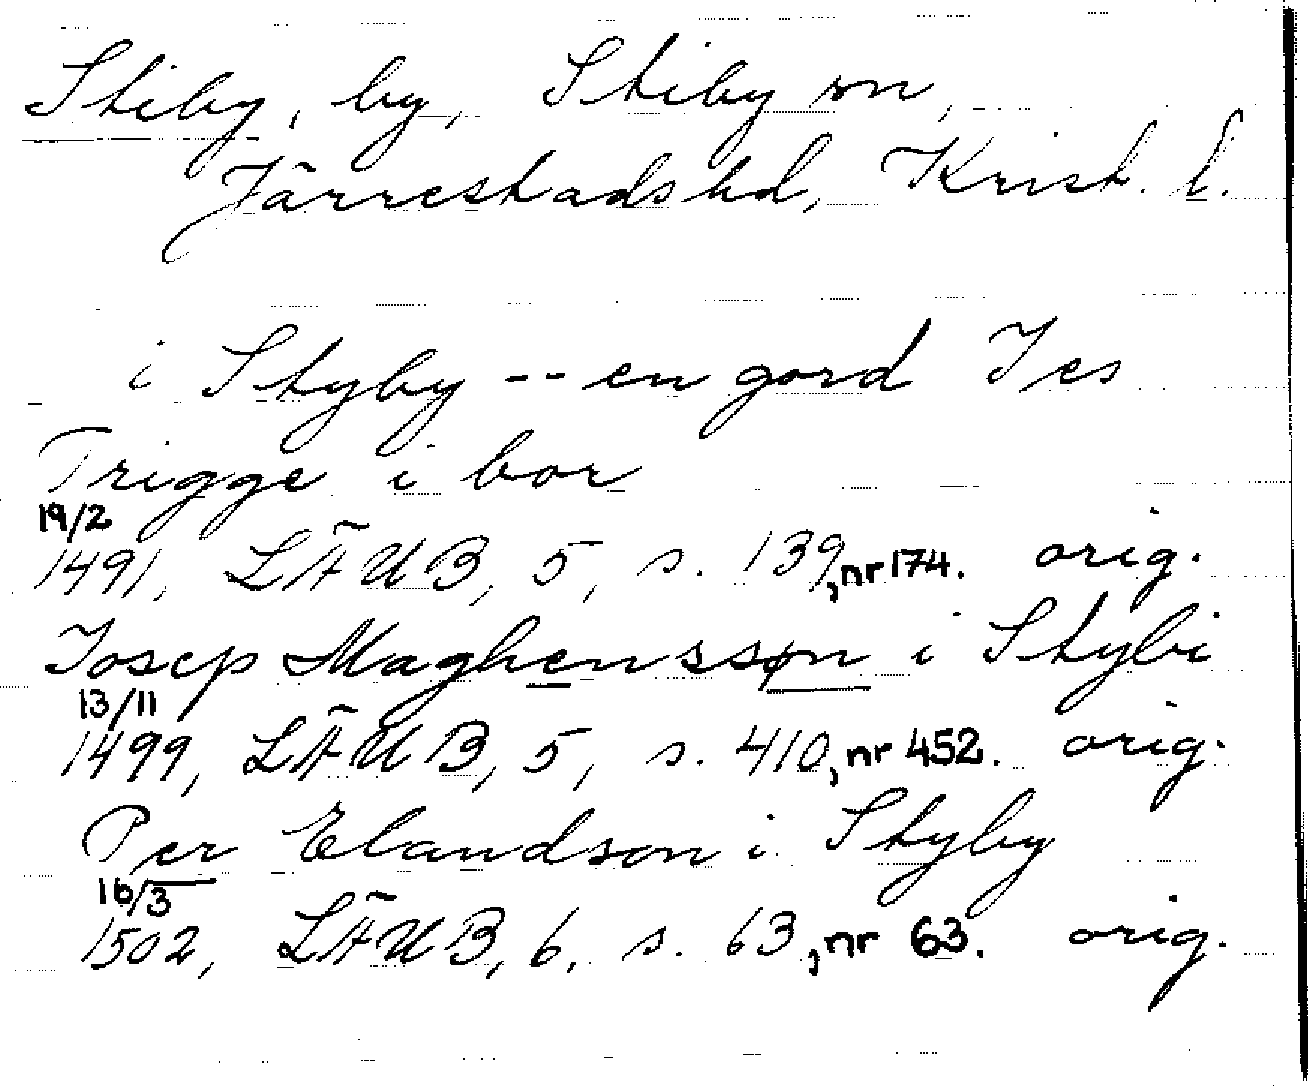 Stiby, by, Stiby sn,
Järrestads hd, Krist. l.
i Styby -- en gord Jes
Trigge i bor
19/2
1491, LÄUB, 5, s. 139, nr 174. orig.
Josep Maghenssøn i Stybi
13/11
1499, LÄUB, 5, s. 410, nr 452. orig.
Per Elandson i Styby
16/3
1502, LÄUB, 6, s. 63, nr 63. orig.